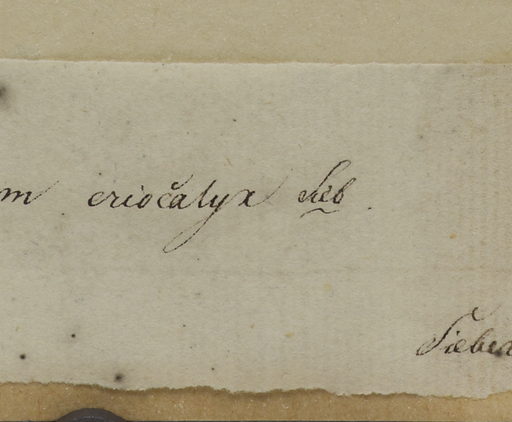 m eriočalyx Sieb.
Sieber